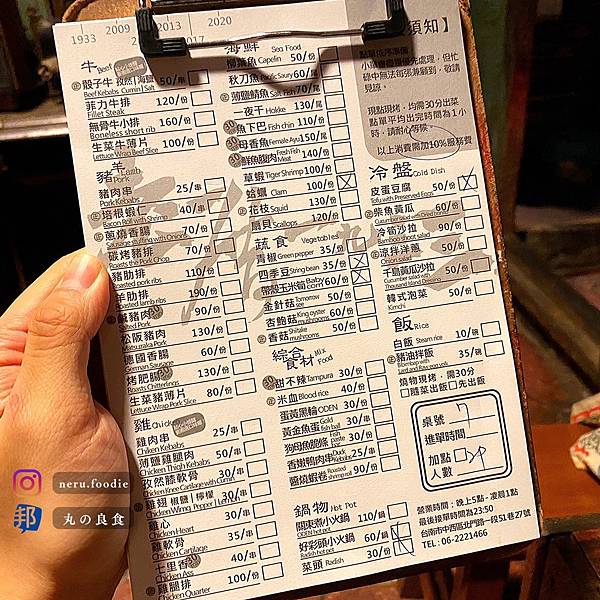 1933 2009 2013 2017 2020
須知】
點單依序準備
小碌會盡量優先處理，但忙
碌中無法每張兼顧到，敬請
見諒。
現點現烤，均需30分出菜
點單平均出完時間為1小
時，請耐心等候。
以上消費需加10%服務費
牛 Beef
骰子牛 孜然|海鹽 50/串
Beef Kebabs Cumin | Salt
菲力牛排 120/份
Fillet Steak
無骨牛小排 160/份
Boneless short rib
生菜牛薄片 100/份
Lettuce Wrap Beef Slice
豬羊 Lamb Pork
豬肉串 25/串
Pork Kebabs
培根蝦仁 40/串
Bacon Roll with Shrimp
蔥燒香腸 70/份
Sausage stuffing with Onion
碳烤豬排 70/份
Roasts the Pork Chop
豬肋排 110/份
Roasted pork ribs
羊肋排 190/份
Roasted lamb ribs
鹹豬肉 90/份
Salted Pork
松阪豬肉 130/份
Matsuzaka Pork
德國香腸 60/份
German Sausage
烤肥腸 130/份
Roasts Chitterlings
生菜豬薄片 80/份
Lettuce Wrap Pork Slice
雞 Chicken
雞肉串 25/串
Chiken Kebabs
薄鹽雞腿肉 50/串
Chicken Thigh Kebabs
孜然膝軟骨 30/串
Chicken Knee Cartilage with Cumin
雞翅 椒鹽|檸檬 30/隻
Chicken Wing Pepper | Lemon
雞心 30/串
Chicken Heart
雞軟骨 30/串
Chicken Cartilage
七里香 35/串
Chicken Ass
雞腿排 100/份
Chicken Quarter
海鮮 Sea Food
柳葉魚 Capelin 50/份
秋刀魚 Pacific Saury 60/尾
薄鹽鯖魚 Salt Fish 80/份
一夜干 Hokke 130/尾
魚下巴 Fish chin 110/份
母香魚 Female Ayu 150/尾
鮮魚腹肉 Fresh Fish Meat 140/份
草蝦 Tiger Shrimp 100/份
蛤蠣 Clam 100/份
花枝 Squid 130/份
扇貝 Scallops 120/份
蔬食 Vegetables
青椒 Green pepper 35/份
四季豆 String bean 35/份
帶殼玉米筍 Baby corn 60/份
金針菇 Tomorrow see 50/份
杏鮑菇 King oyster mushrooms 60/份
香菇 Shiitake mushrooms 50/份
綜合食材 Mix Food
甜不辣 Tampura 30/份
米血 Blood rice 40/份
蛋黃黑輪 ODEN 30/份
黃金魚蛋 Gold fish ball 30/串
狗母魚脆條 Fish paste bar 30/份
香嫩鴨肉串 Duck Kebabs 25/串
鹽燒蝦卷 Roasted shrimp roll 90/份
鍋物 Hot Pot
關東煮小火鍋 110/鍋
ODEN hot pot
好彩頭小火鍋 60/鍋
Radish hot pot
菜頭 Radish 30/份
冷盤 Cold Dish
皮蛋豆腐 50/份
Tofu with Preserved Eggs
柴魚黃瓜 60/份
Cucumber salad with Dried bonito
冷筍沙拉 90/份
Bamboo shoot salad
涼拌洋蔥 50/份
Onion salad
千島黃瓜沙拉 50/份
Cucumber salad with Thousand Island Dressing
韓式泡菜 50/份
Kimchi
飯 Rice
白飯 Steam rice 10/碗
豬油拌飯 35/碗
燒物現烤，需30分
□隨菜出飯□先出飯
桌號 7
進單時間
加點
人數
營業時間：晚上5點-凌晨1點
最後接單時間為23:50
台南市中西區北門路一段51巷27號
TEL: 06-2221466
neru.foodie
邦 丸の良食